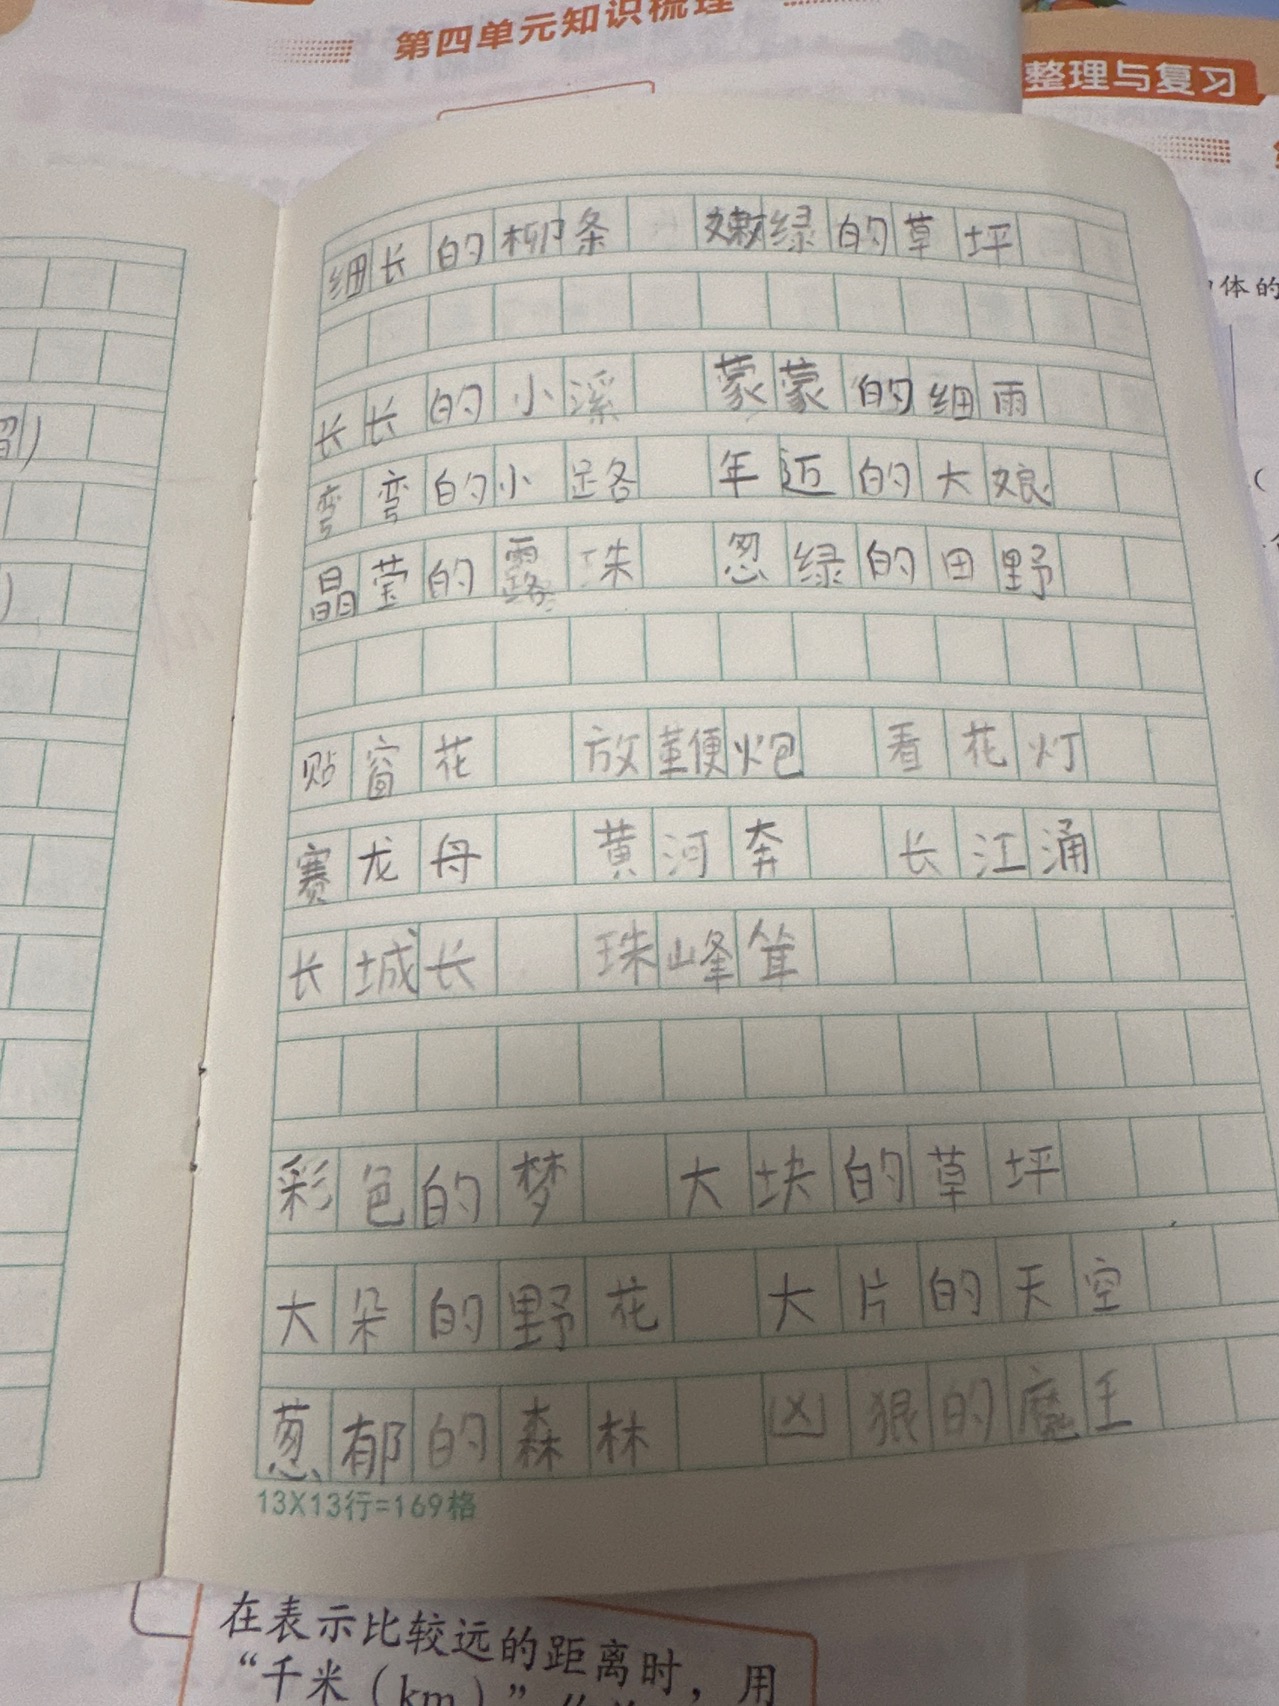 第四单元知识梳理
整理与复习
体的
细长的柳条 嫩绿的草坪
长长的小溪 蒙蒙的细雨
弯弯的小路 年迈的大娘
晶莹的露珠 忽绿的田野
贴窗花 放鞭炮 看花灯
赛龙舟 黄河奔 长江涌
长城长 珠峰耸
彩色的梦 大块的草坪
大朵的野花 大片的天空
葱郁的森林 凶狠的魔王
13X13行=169格
在表示比较远的距离时，用
“千米（km）”